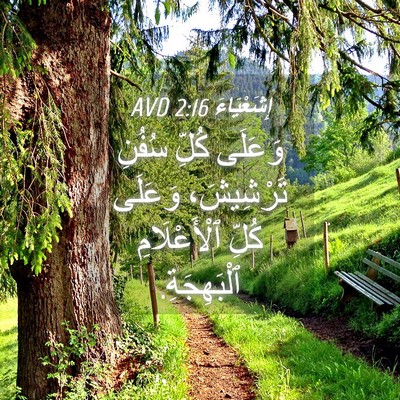 إِشَعْيَاءَ 2:16 AVD
وَعَلَى كُلِّ سُفُنِ
تَرْشِيشَ، وَعَلَى
كُلِّ ٱلْأَعْلَامِ
ٱلْبَهِجَةِ.